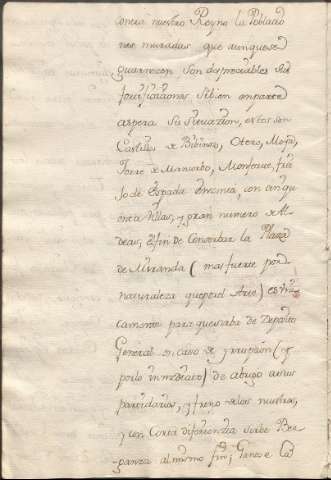 contra nuestro Reyno la Poblacio
nes muradas que aunque se
guarnecen son despreciables sus
fortificaciones si bien en parte
aspera su situazion, estos son
Castillos de Otero, Moga,
Torre de Monforte, frei
Jo de Espada con cinqu
enta Villas, y gran numero de Al
deas, el fin de Conserbar la Plaza
de Miranda (mas fuerte por
naturaleza que por el Arte) es Uni
camente para que sirba de Deposito
General en caso de yrrupcion (y
por lo inmediato) de abrigo a sus
partidarios, y freno de los nuestros,
y con Corta diferencia sirbe Ber
ganza al mismo fin;